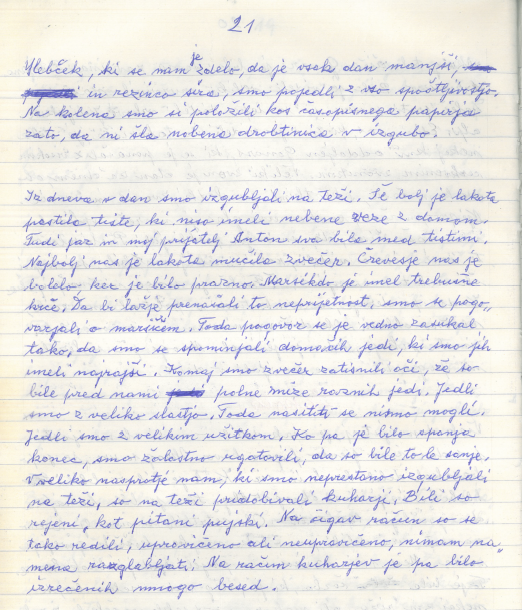 21
Hlebček, ki se nam je zdelo, da je vsak dan manjši,
in rezinco sira, smo pojedli z vso spoštljivostjo.
Na kolena smo si položili kos časopisnega papirja
zato, da ni šla nobena drobtinica v izgubo.
Iz dneva v dan smo izgubljali na teži. Še bolj je lakota
pestila tiste, ki niso imeli nebene veze z domom.
Tudi jaz in moj prijatelj Anton sva bila med tistimi.
Najbolj nas je lakota mučila zvečer. Črevesje nas je
bolelo, ker je bilo prazno. Marsikdo je imel trebušne
krče. Da bi lažje prenašali to neprijetnost, smo se pogo„
varjali o marsičem. Toda pogovor se je vedno zasukal
tako, da smo se spominjali domačih jedi, ki smo jih
imeli najrajši. Komaj smo zvečer zatisnili oči, že so
bile pred nami polne mize raznih jedi. Jedli
smo z veliko slastjo. Toda nasititi se nismo mogli.
Jedli smo z velikim užitkom. Ko pa je bilo spanja
konec, smo žalostno ugotovili, da so bile to le sanje.
V veliko nasprotje nam, ki smo neprestano izgubljali
na teži, so na teži pridobivali kuharji. Bili so
rejeni, kot pitani pujski. Na čigav račun so se
tako redili, upravičeno ali neupravičeno, nimam na„
mena razglabljati. Na račun kuharjev je pa bilo
izrečenih mnogo besed.